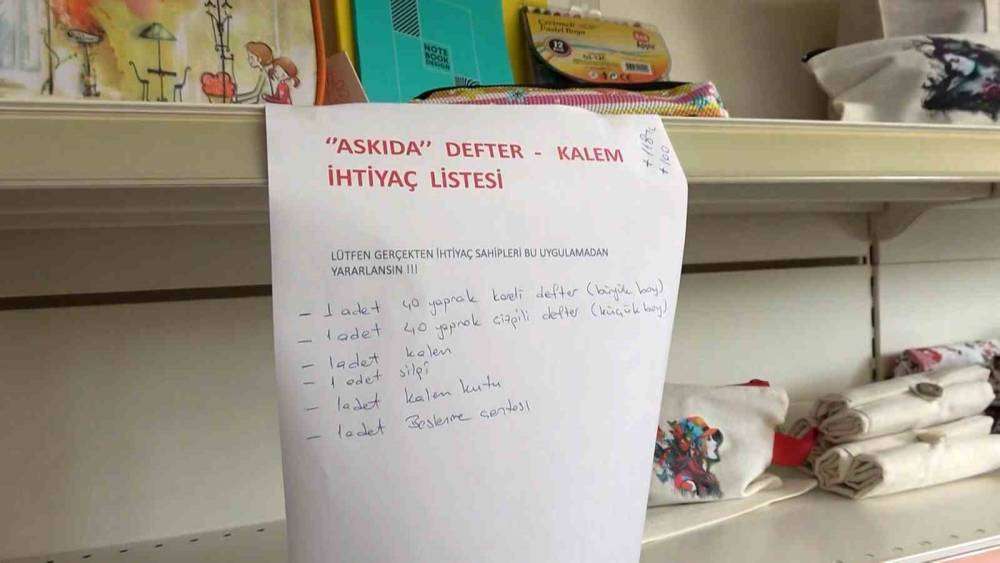 NOTE
BOOK
DESIGN
Pastel Boya
12
"ASKIDA" DEFTER - KALEM
İHTİYAÇ LİSTESİ
+118
+100
LÜTFEN GERÇEKTEN İHTİYAÇ SAHİPLERİ BU UYGULAMADAN
YARARLANSIN !!!
- 1 adet 40 yaprak kareli defter (büyük boy)
- 1 adet 40 yaprak çizgili defter (küçük boy)
- 1 adet kalem
- 1 adet silgi
- 1 adet kalem kutu
- 1 adet Beslenme çantası